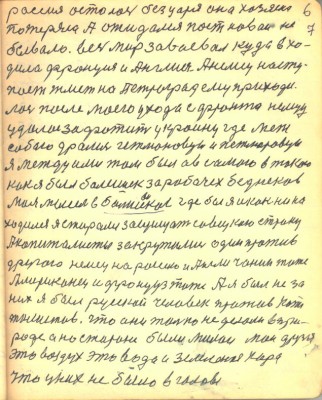 россия осталах без царя она хозяена 6
потеряла А ожидался пост новай не 7
бывало. вех мир завоевал куда вхо-
дила франция и Англия. А нему насту-
поет к Петрограду приходи.
лох после моего ухода с фронта немцу
удалос захотит украину где меж
собою дралис гетмоновцы и петлюровцы
я между или том был
как я был болшек за рабочех бедняков
моя мысел в болшеков где бы я на ни ка
ходился я старалса защищат советскую строну
А капиталисты закрутили один против
другого немец на россию и Англичанин тоже
Американец и француз тоже А я был не за
них я был русской человек против кап
толистов. что они только не делали в при-
роде а на стороне были милаи мои друзя
это воздух это вода и земля
что у них не было в голове